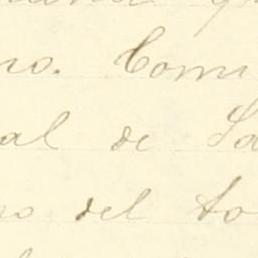 no. Comi
al de Sa
no del to